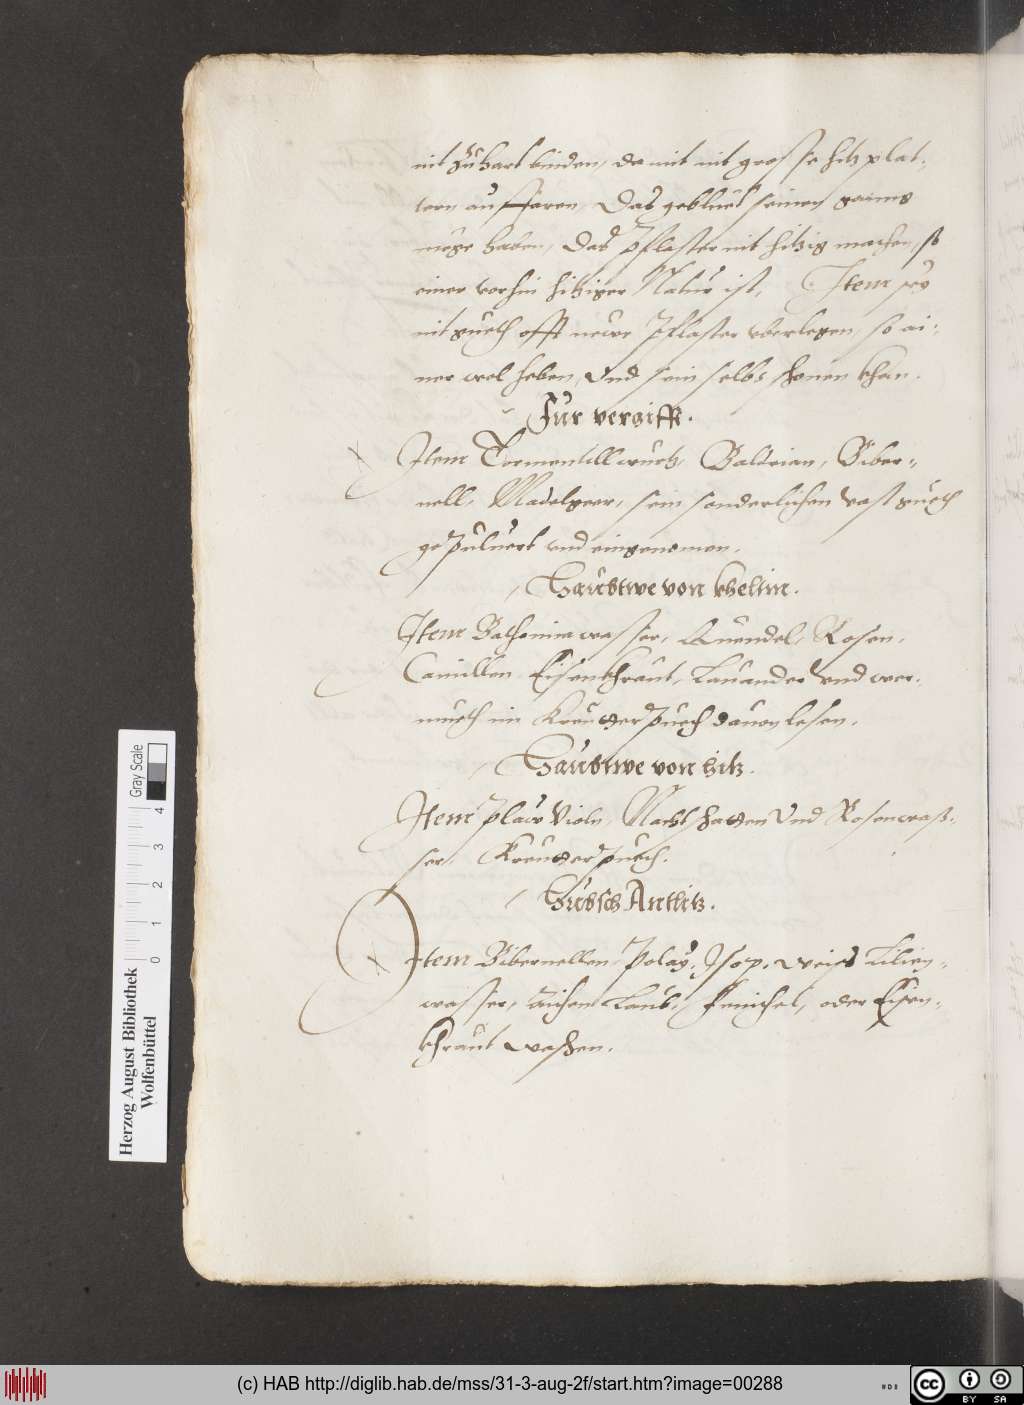 nit zu hart binden, damit nit grosse hitz plat-
tern auffaren, Das geblüet seinen ganng
müge haben, Das Pflaster nit hitzig machen, so
einer vorhin hitziger Natur ist, Item sey
nit gueth offt newe Pflaster vberlegen, so ai-
ner wol heben, vnd sein selbs schonen khan.
Für vergifft.
Item Tormentill wurtz, Baldrian, Biber-
nell, Madelgeer, sein sonderlichen vast gueth
gepuluert vnd eingenomen.
Haubtwe von khelttn.
Item Bathonien wasser, Quendel, Rosen,
Camillen Eisenkhraut, Lauander vnd wer-
mueth im Kreutterpuech dauon lesen.
Haubtwe von hitz.
Item plaw Violn, Nachtschatten Vnd Rosenwas-
ser, Kreutterpuech.
Hübsch Antlitz.
Item Bibernellen Polay, Isop, weiss Lilien-
wasser, Aichen Laub, Fenichel, oder Eisen-
khraut waschen.
Herzog August Bibliothek
Wolfenbüttel
0 1 2 3 4
Gray Scale
(c) HAB http://diglib.hab.de/mss/31-3-aug-2f/start.htm?image=00288
cc BY SA